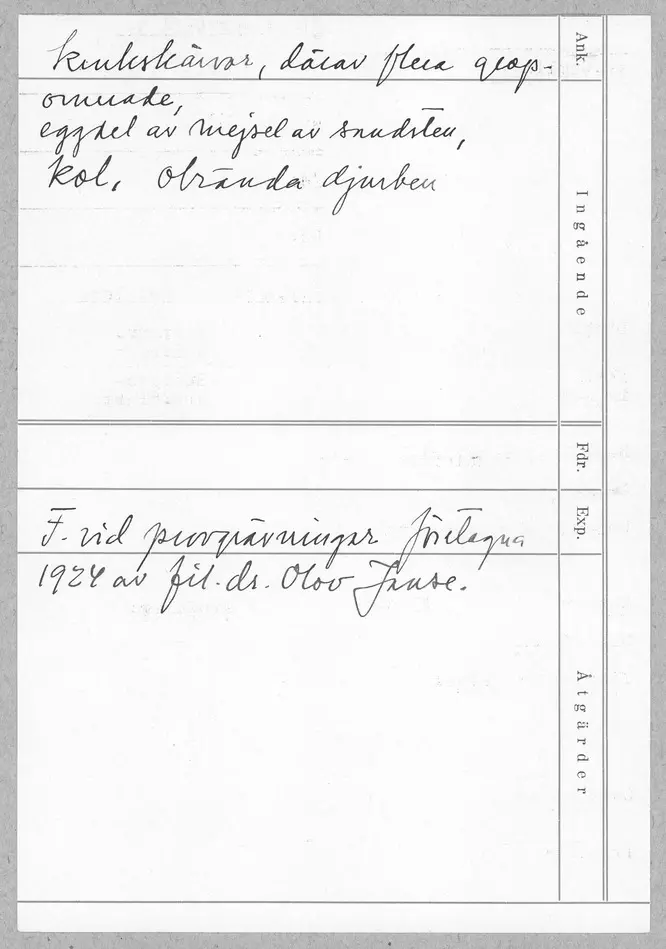 krukskärvor, därav flera grop-
ornerade,
eggdel av mejsel av sandsten,
kol, obrända djurben
F. vid provgrävningar företagna
1924 av fil. dr. Olov Janse.
Ank.
Ingående
Fdr.
Exp.
Åtgärder